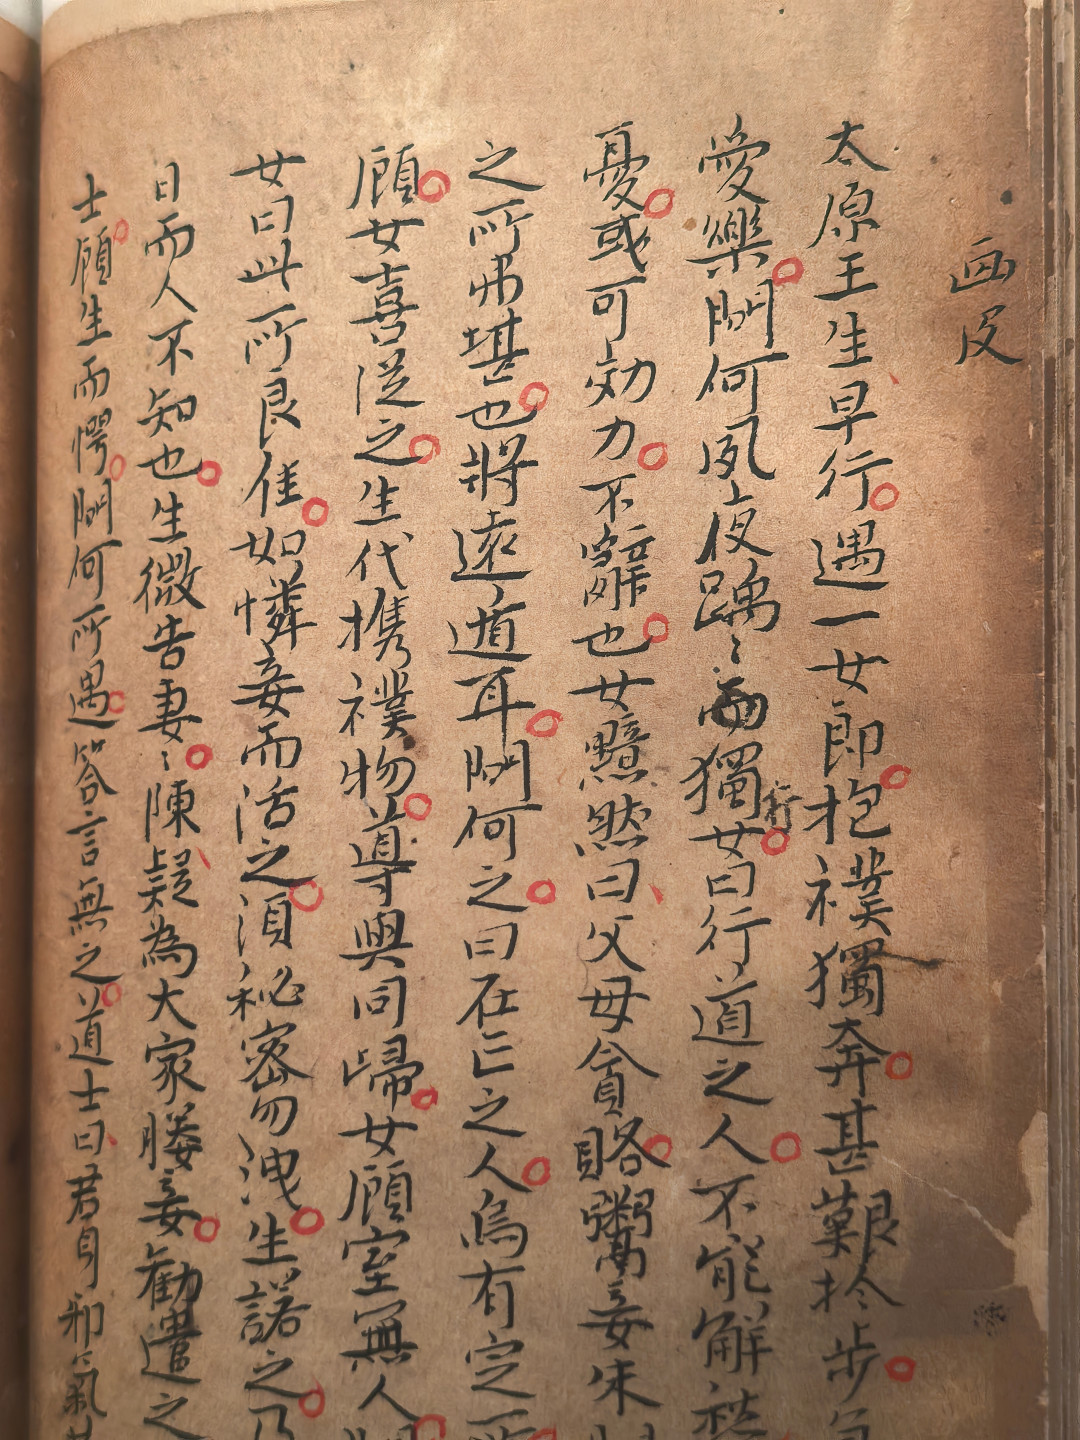 画皮
太原王生早行遇一女郎抱襆獨奔甚艱於步
愛樂問何夙夜踽〻而獨行女曰行道之人不能解愁
憂或可効力不辭也女黯然曰父母貪賂鬻妾朱
之所弗堪也將遠遁耳問何之曰在亡之人烏有定所
顧女喜從之生代携襆物導與同歸女顧室無人
女曰此所良佳如憐妾而活之須秘密勿洩生諾之乃
日而人不知也生微告妻〻陳疑為大家媵妾勸遣之
士顧生而愕問何所遇答言無之道士曰君身邪氣